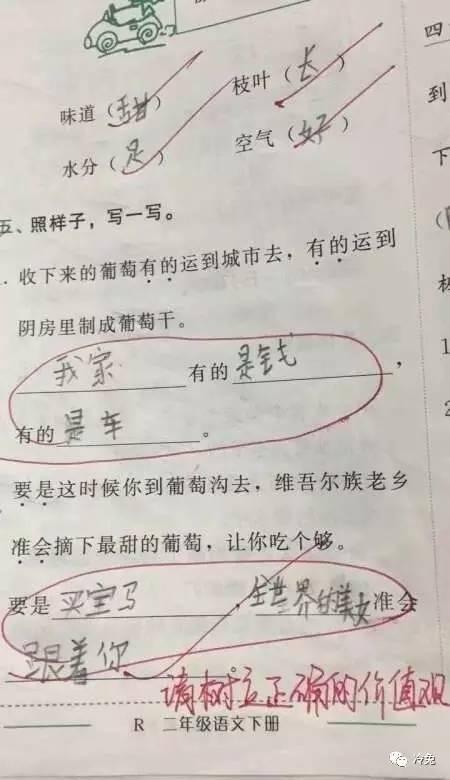 味道（甜）
枝叶（长）
水分（足）
空气（好）
五、照样子，写一写。
. 收下来的葡萄有的运到城市去，有的运到
阴房里制成葡萄干。
我家有的是钱，
有的是车。
要是这时候你到葡萄沟去，维吾尔族老乡
准会摘下最甜的葡萄，让你吃个够。
要是买宝马，全世界的美女准会
跟着你。
请树立正确的价值观
R 二年级语文下册
四
到
下
1
2
冷兔